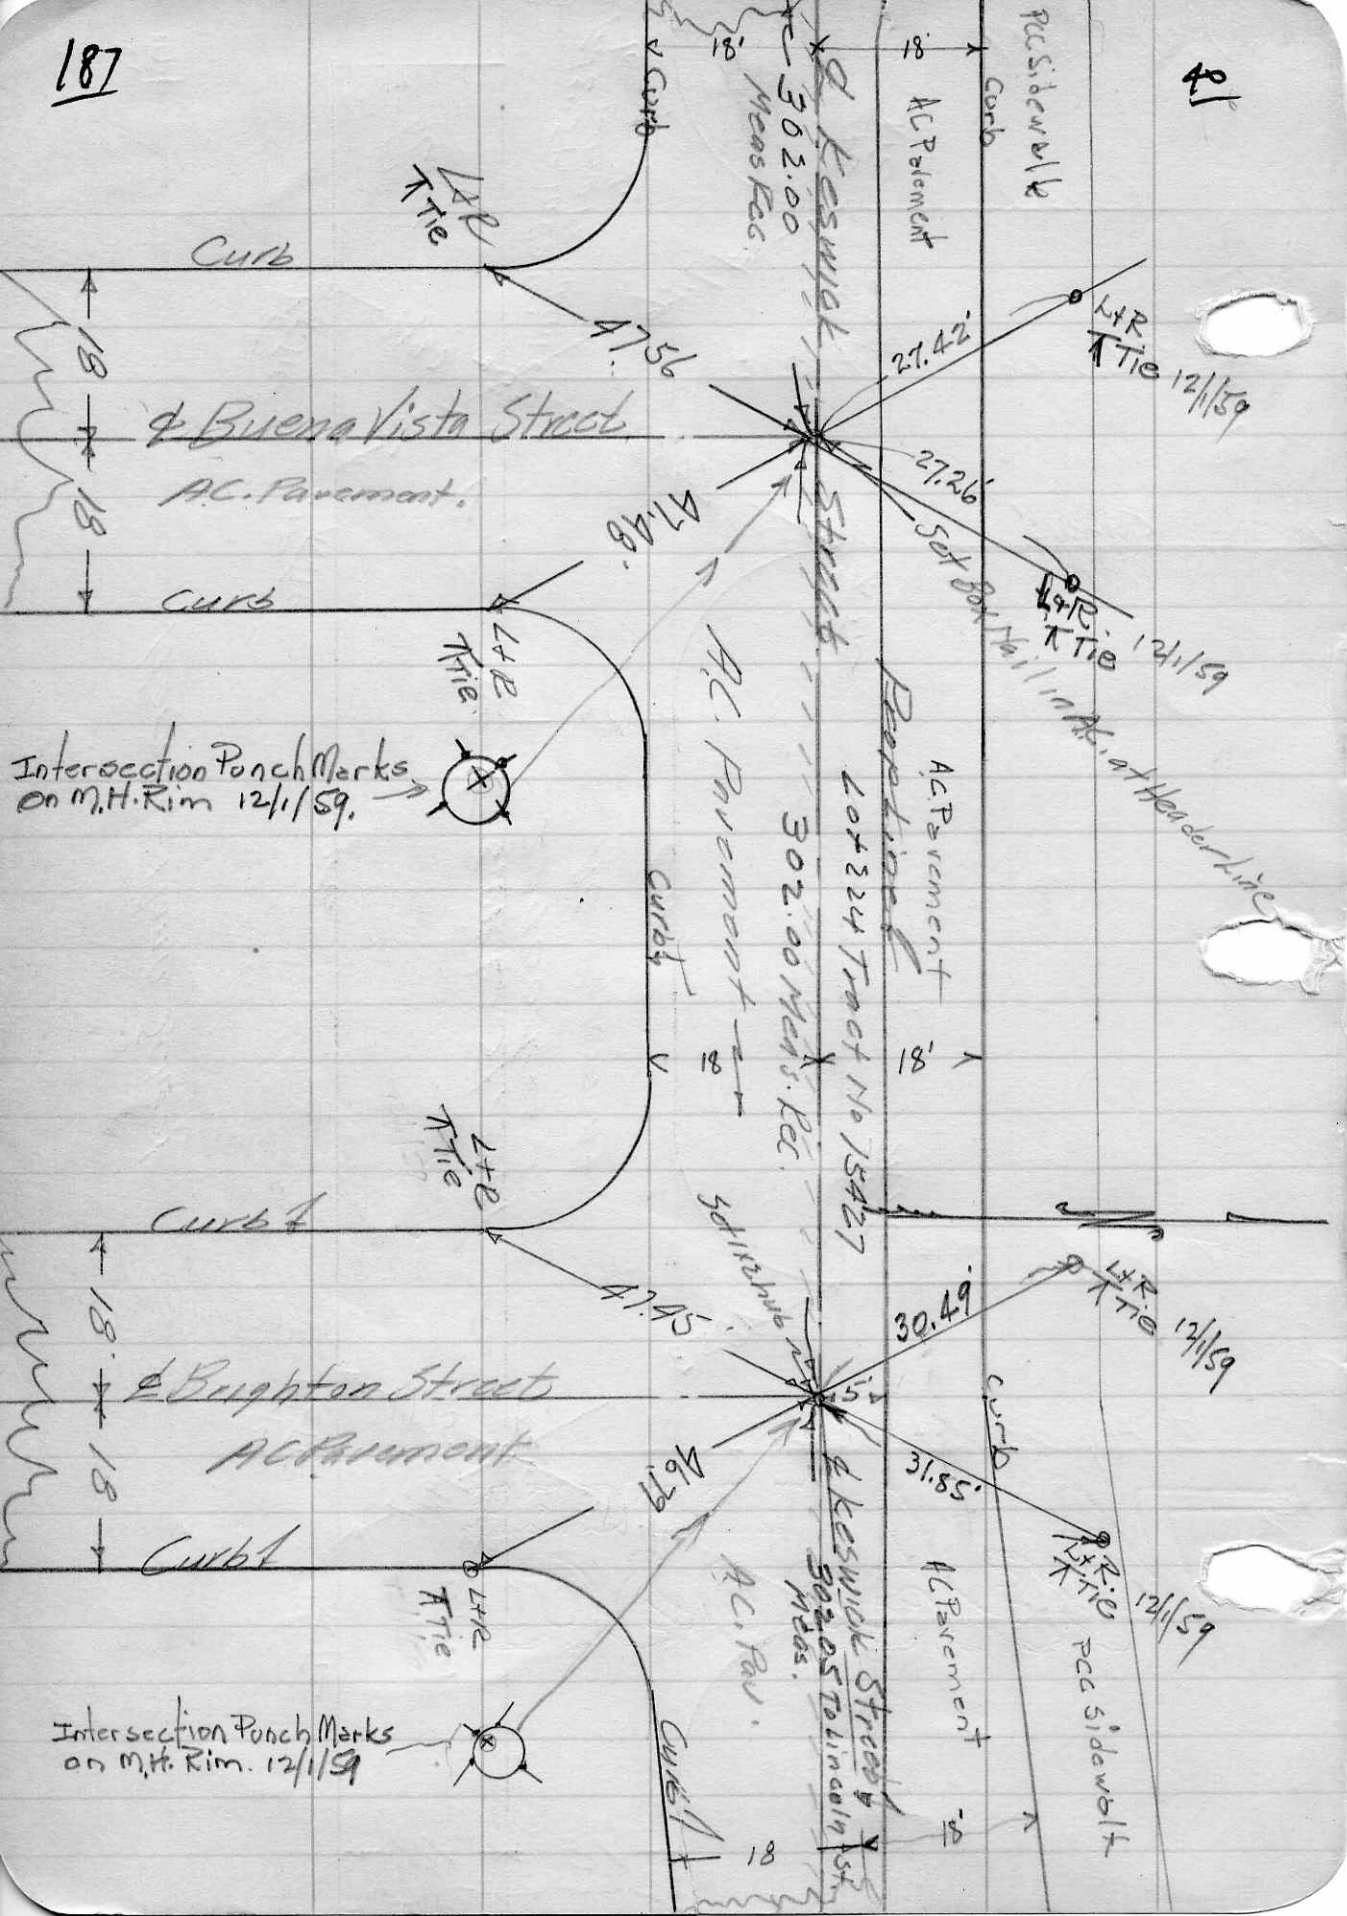 187
40
18'
18
Curb
302.00
Meas Rec.
℄ Keswick Street
AC Pavement
Curb
PCC Sidewalk
L+R
↑ Tie
Curb
47.56
27.42'
L+R.
↑ Tie 12/1/59
18
℄ Buena Vista Street
A.C. Pavement.
18
47.48.
27.26'
Set 80d Nail in AC. at Header Line
L+R.
↑ Tie 12/1/59
Curb
L+R
↑ Tie.
Intersection Punch Marks
on M.H. Rim 12/1/59.
A.C. Pavement
302.00 Meas. Rec.
Lot 224 Tract No 15427
AC. Pavement
Curb
18
18'
L+R
↑ Tie
Curb
47.45
Set 1x2 hub
30.49'
L+R.
↑ Tie 12/1/59
18
℄ Brighton Street
AC Pavement
18
46.79
31.85'
Curb
L+R.
↑ Tie 12/1/59
Curb
L+R
↑ Tie
A.C. Pav.
℄ Keswick Street
302.05 To Lincoln St.
Meas.
AC Pavement
PCC Sidewalk
Intersection Punch Marks
on M.H. Rim. 12/1/59
Curb
18
18